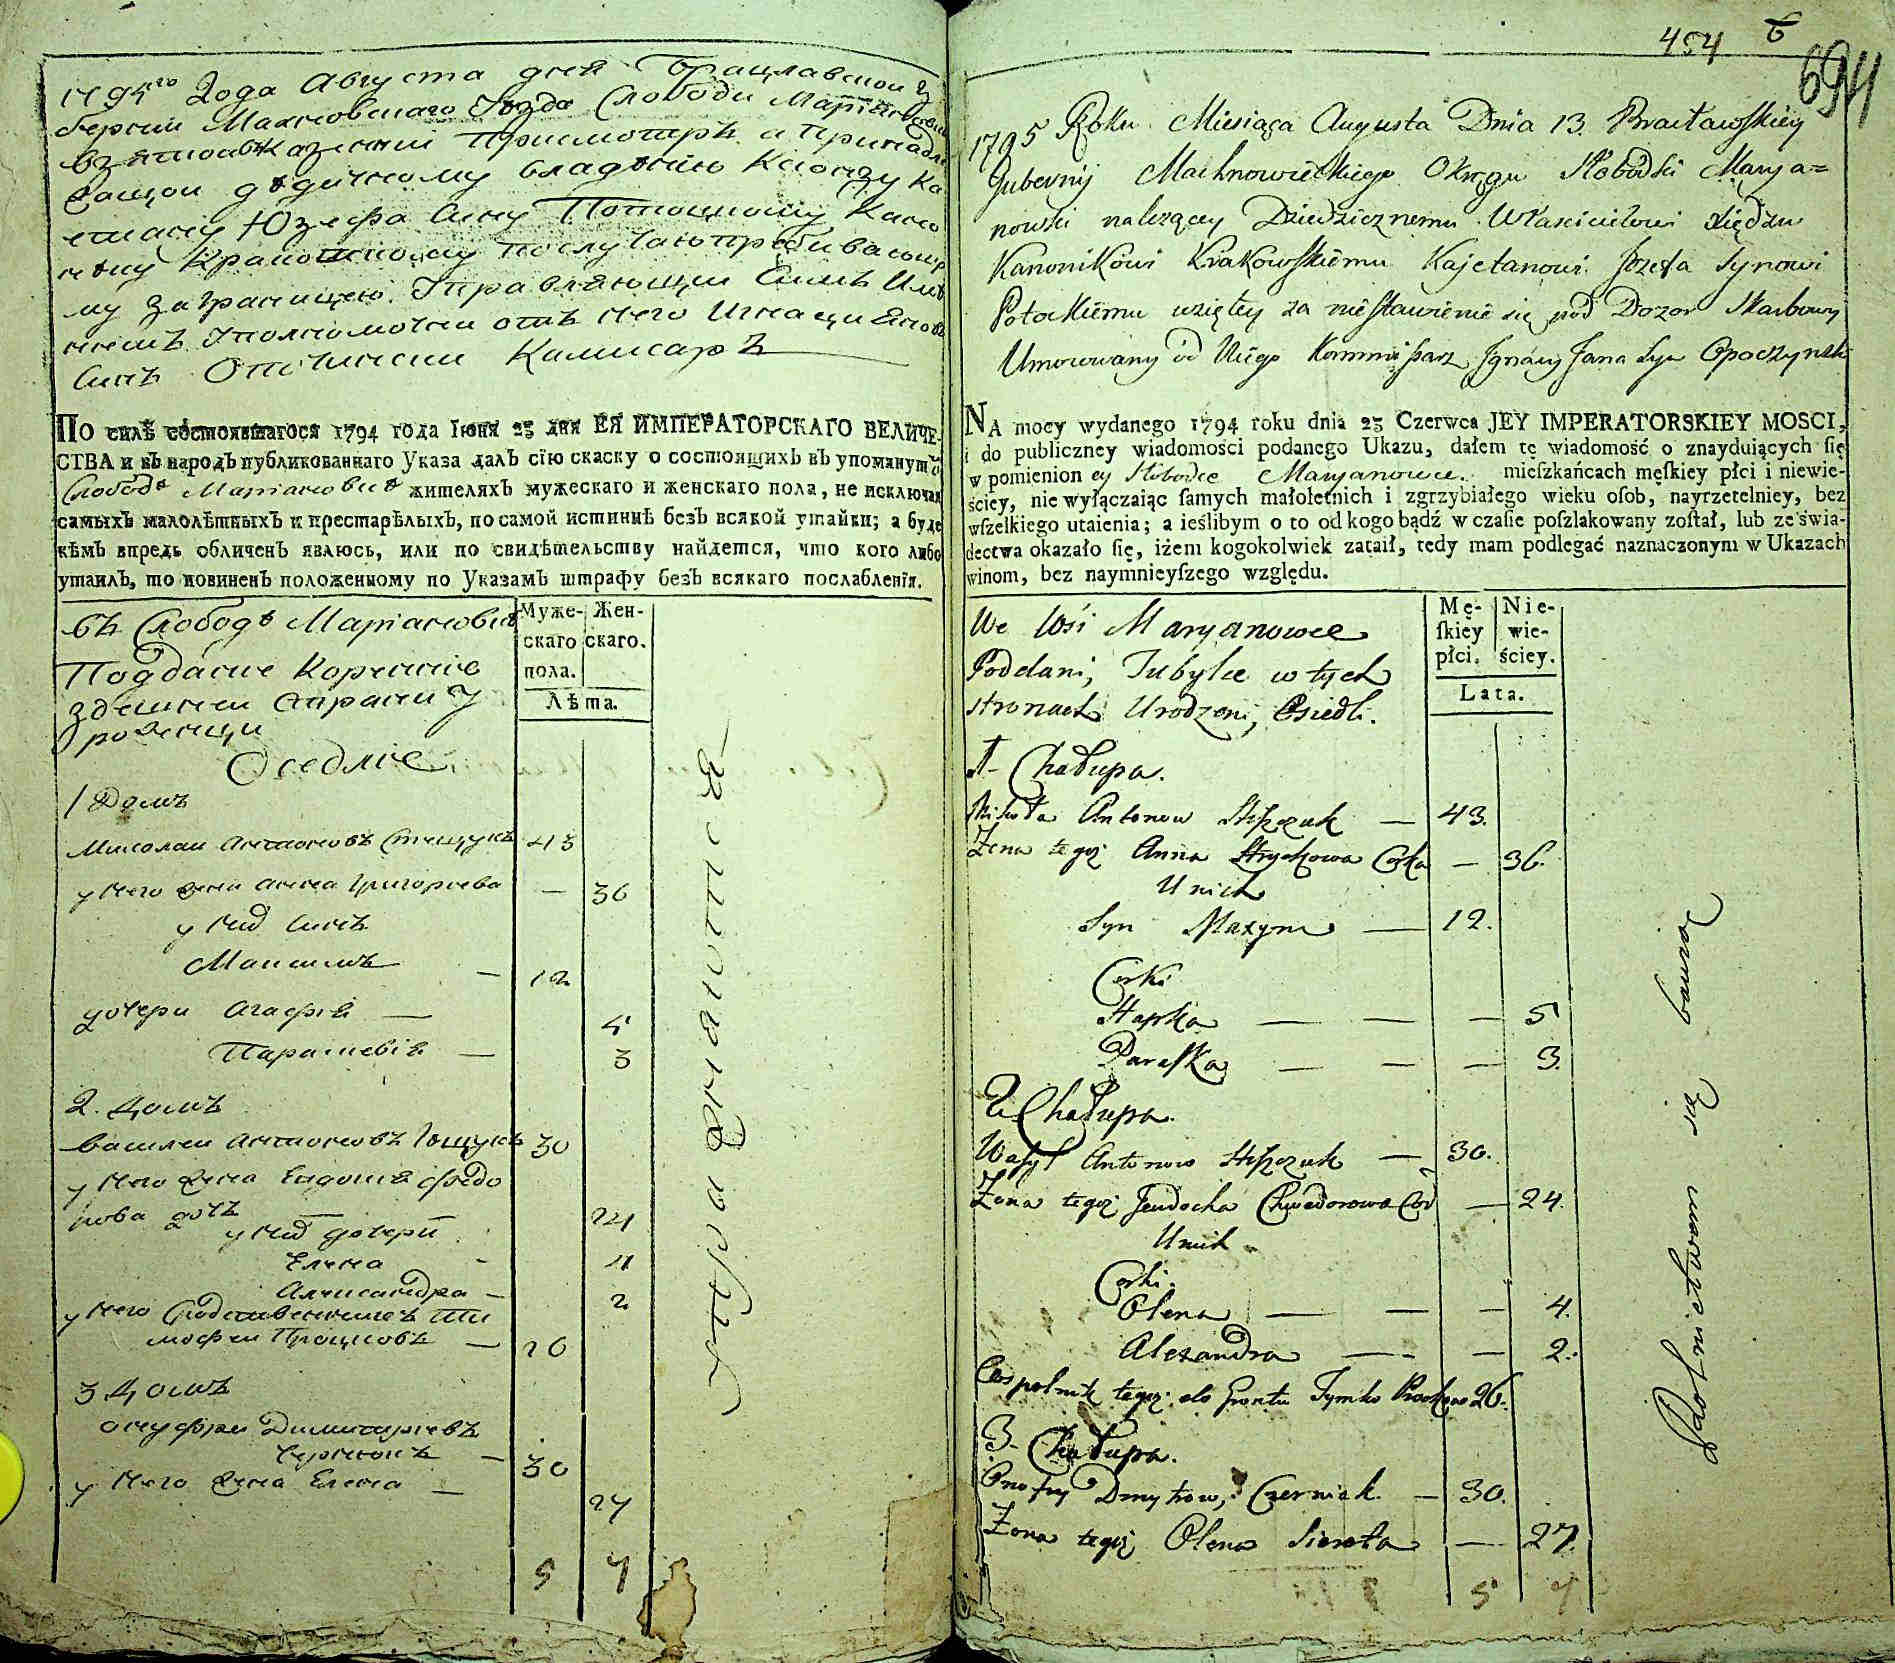 1795го Года Августа дня Брацлавской Гу
берний Махновского Уезда Слободи Марiановки
взятой в Казенний Присмотръ и Принадле
жащой дедичному владению Ксіондзу Ка
етану Юзефа Сину Потоцкому Кано
нику Краковскому по случаю пребивающе
му заграницею. Управляющий симъ Име
ниемъ Уполномочни отъ него Игнаци Янов
Синъ Опочински Камисаръ
По силѣ состоявшагося 1794 года Iюня 23 дня ЕЯ ИМПЕРАТОРСКАГО ВЕЛИЧЕ-
СТВА и въ народъ публикованнаго Указа далъ сїю скаску о состоящихъ въ упомянутой
Слободѣ Марiановкѣ жителяхъ мужескаго и женскаго пола, не исключая
самыхъ малолѣтныхъ и престарѣлыхъ, по самой истиннѣ безъ всякой утайки; а буде
кѣмъ впредь обличенъ явлюсь, или по свидѣтельству найдется, что кого либо
утаилъ, то повиненъ положенному по Указамъ штрафу безъ всякаго послабленїя.
въ Слободѣ Марiановкѣ
Поддание Коренние
здешней страни У
роженци
Оседлие
Муже-
скаго
пола.
Жен-
скаго.
Лѣта.
1 Домъ
Миколаи Антоновъ Стещукъ 43
у него жена Анна Григориева — 36
у них Синъ
Максимъ — 12
дочери Агафiя — 5
Параскевiя — 3
2. Домъ
Василеи Антоновъ 30
у него жена Евдокия Федо
рова дочь — 24
у них дочери
Елена - 4
Александра — 2
у него Родственникъ Ти
мофеи Процковъ — 26
3 Домъ
Онуфреи Димитриевъ
Чернюкъ — 30
у него жена Елена — 27
5 7
454 6
694
1795 Roku Miesiąca Augusta Dnia 13. Bracławskiey
Gubernij Machnowieckiego Okręgu Słobodki Marya=
nowki należącey Dziedzicznemu Właścicielowi Xiędzu
Kanonikowi Krakowskiemu Kajetanowi Józefa Synowi
Potockiemu wziętey za niestawienie się pod Dozor Skarbowy
Umocowany od Niego Kommissarz Ignacy Jana Syn Opoczynski
NA mocy wydanego 1794 roku dnia 23 Czerwca JEY IMPERATORSKIEY MOSCI,
i do publiczney wiadomości podanego Ukazu, dałem tę wiadomość o znayduiących ſię
w pomienion ey Słobodce Maryanowce. mieſzkańcach męſkiey płci i niewie-
ściey, nie wyłączaiąc ſamych małoletnich i zgrzybiałego wieku oſob, nayrzetelniey, bez
wſzelkiego utaienia; a ieślibym o to od kogo bądź w czaſie poſzlakowany zoſtał, lub ze świa-
dectwa okazało ſię, iżem kogokolwiek zataił, tedy mam podlegać naznaczonym w Ukazach
winom, bez naymnieyſzego względu.
We Wsi Maryanowce
Poddani, Tubylce w tych
stronach Urodzeni, Osiedli.
Mę-
ſkiey
płci.
Nie-
wie-
ściey.
Lata.
1- Chałupa.
Mikoła Antonow Steszczuk — 43.
Żona tegoż Anna Hryckowa Corka — 36.
U nich
Syn Maxym — 12.
Corki
Hapka — — — 5
Paraſka — — — 3.
2 Chałupa.
Waſyl Antonow Steszczuk — 30.
Żona tegoż Jewdocha Chwedorowa Cor — 24.
U nich
Corki.
Olena — — — 4.
Alexandra — — 2.
Wspolnik tegoż do Gruntu Tymko Prockow 26.
3- Chałupa.
Onofry Dmytrow, Czerniuk — 30.
Żona tegoż Olena Sierota — 27.
5 7
Rolnictwem się bawią